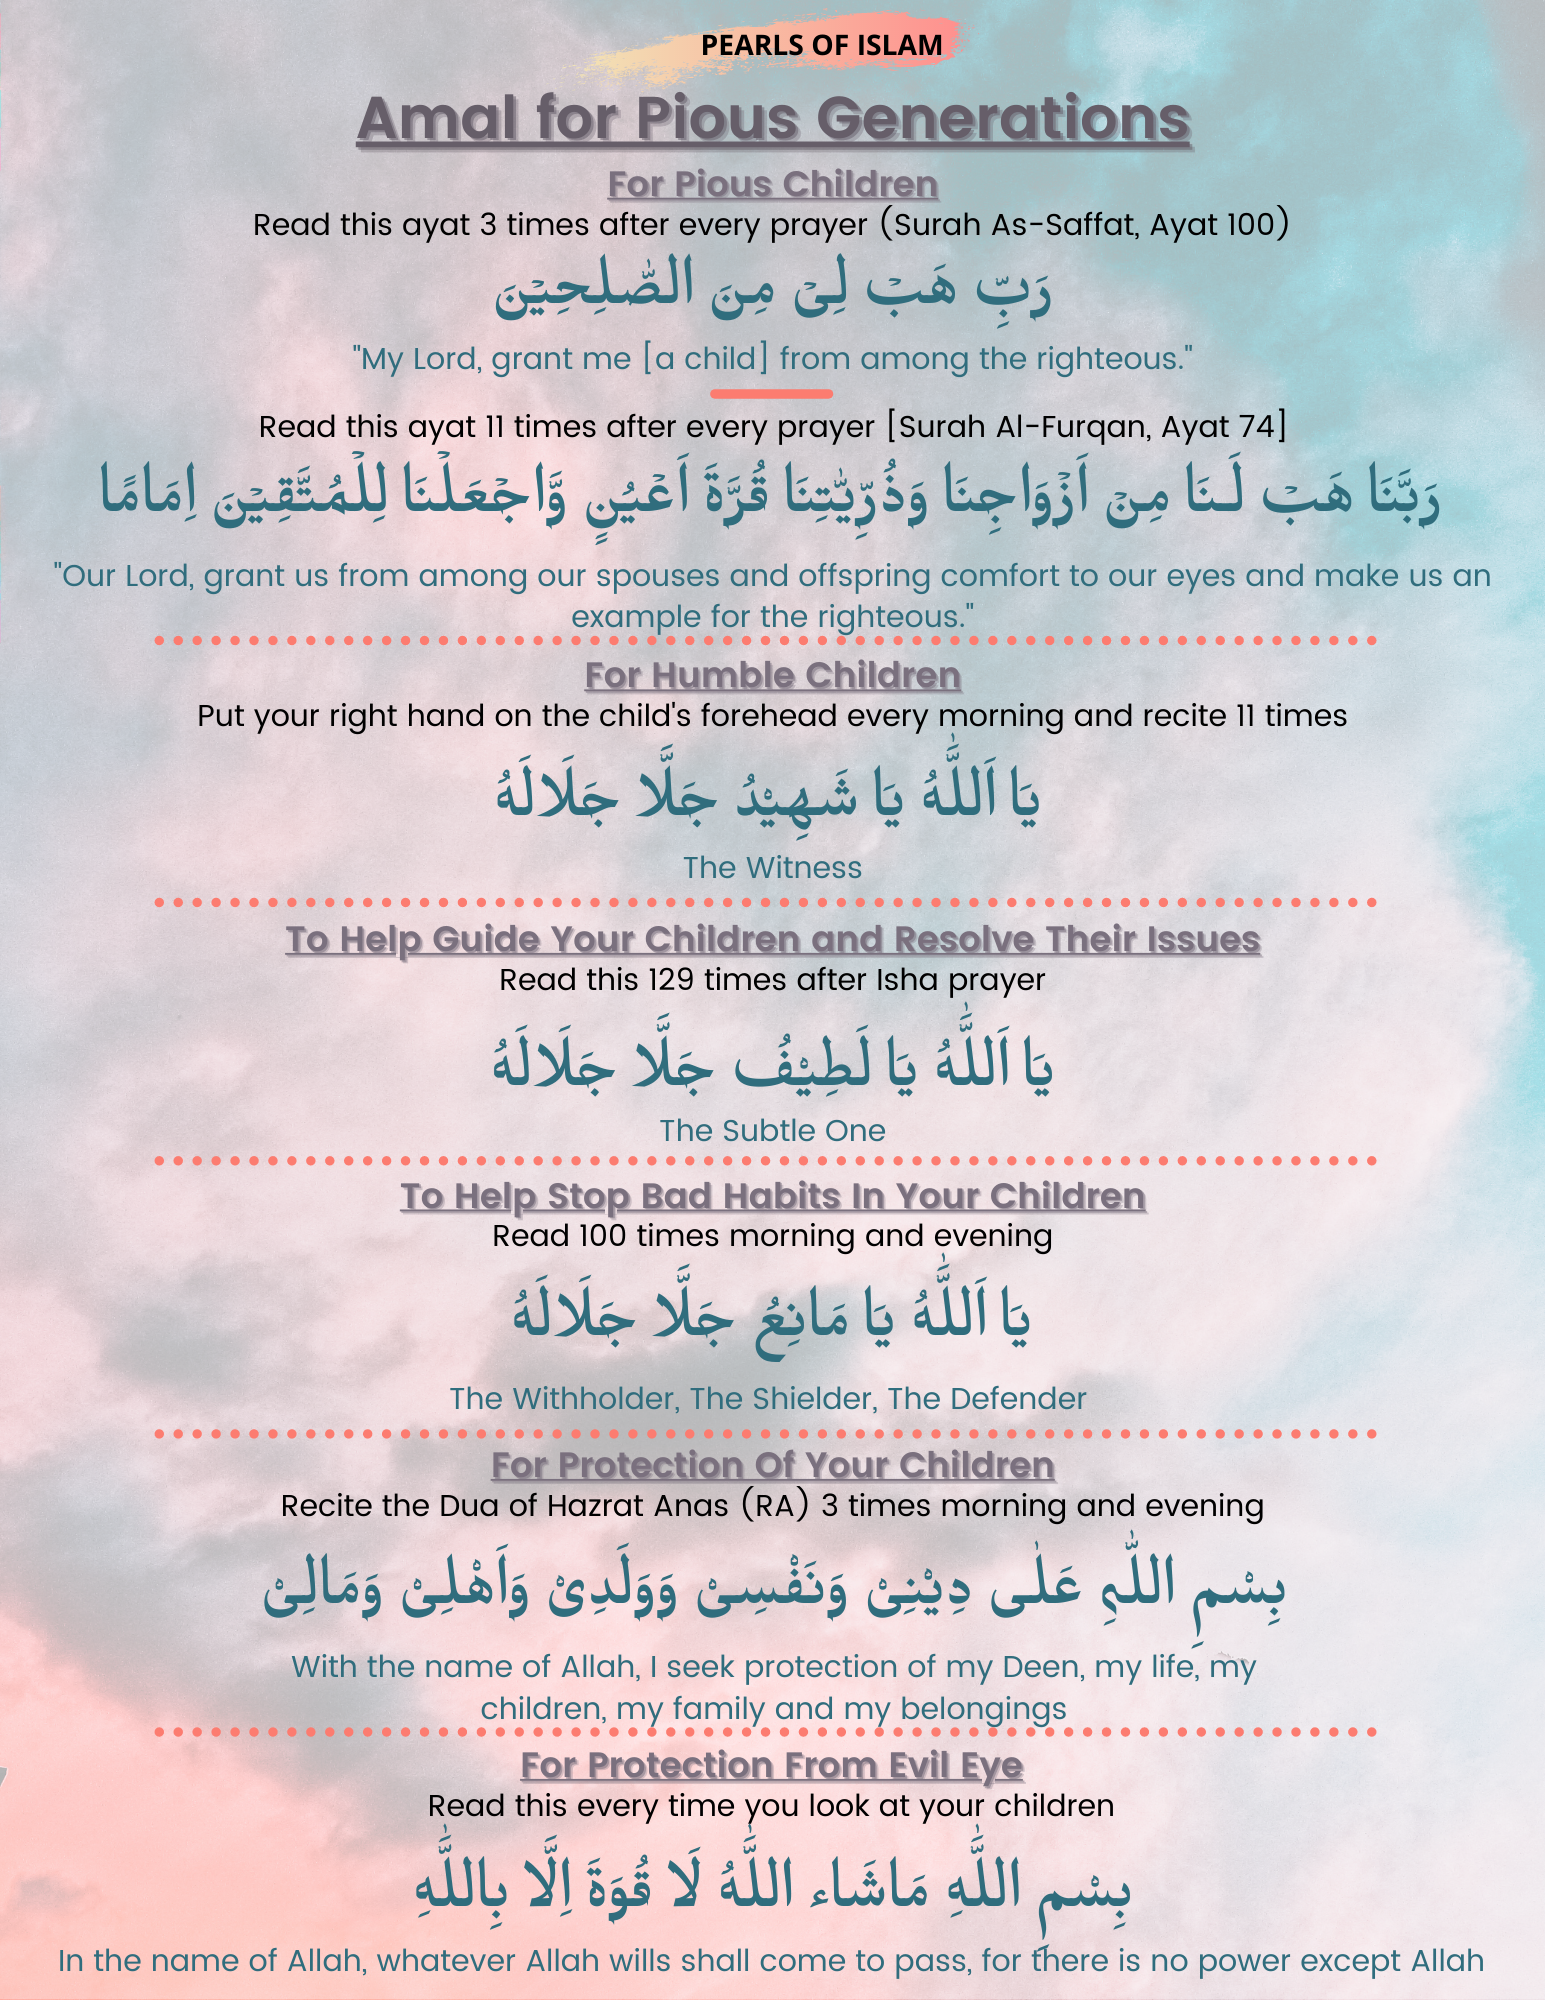 PEARLS OF ISLAM
Amal for Pious Generations
For Pious Children
Read this ayat 3 times after every prayer (Surah As-Saffat, Ayat 100)
رَبِّ هَبۡ لِىۡ مِنَ الصّٰلِحِيۡنَ
"My Lord, grant me [a child] from among the righteous."
Read this ayat 11 times after every prayer [Surah Al-Furqan, Ayat 74]
رَبَّنَا هَبۡ لَـنَا مِنۡ اَزۡوَاجِنَا وَذُرِّيّٰتِنَا قُرَّةَ اَعۡيُنٍ وَّاجۡعَلۡنَا لِلۡمُتَّقِيۡنَ اِمَامًا
"Our Lord, grant us from among our spouses and offspring comfort to our eyes and make us an
example for the righteous."
For Humble Children
Put your right hand on the child's forehead every morning and recite 11 times
يَا اَللَّهُ يَا شَهِيْدُ جَلَّا جَلَالَهُ
The Witness
To Help Guide Your Children and Resolve Their Issues
Read this 129 times after Isha prayer
يَا اَللَّهُ يَا لَطِيْفُ جَلَّا جَلَالَهُ
The Subtle One
To Help Stop Bad Habits In Your Children
Read 100 times morning and evening
يَا اَللَّهُ يَا مَانِعُ جَلَّا جَلَالَهُ
The Withholder, The Shielder, The Defender
For Protection Of Your Children
Recite the Dua of Hazrat Anas (RA) 3 times morning and evening
بِسْمِ اللّٰہِ عَلٰى دِيْنِىْ وَنَفْسِىْ وَوَلَدِىْ وَاَهْلِىْ وَمَالِىْ
With the name of Allah, I seek protection of my Deen, my life, my
children, my family and my belongings
For Protection From Evil Eye
Read this every time you look at your children
بِسْمِ اللَّهِ مَاشَاء اللَّهُ لَا قُوَةَ اِلَّا بِاللَّهِ
In the name of Allah, whatever Allah wills shall come to pass, for there is no power except Allah